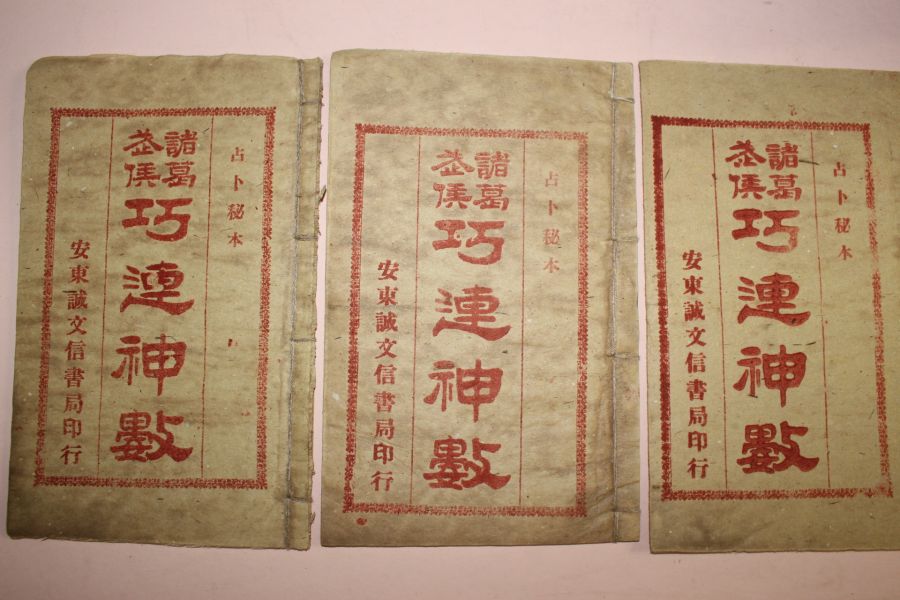 占卜秘本
諸葛武侯
巧連神數
安東誠文信書局印行
占卜秘本
諸葛武侯
巧連神數
安東誠文信書局印行
占卜秘本
諸葛武侯
巧連神數
安東誠文信書局印行